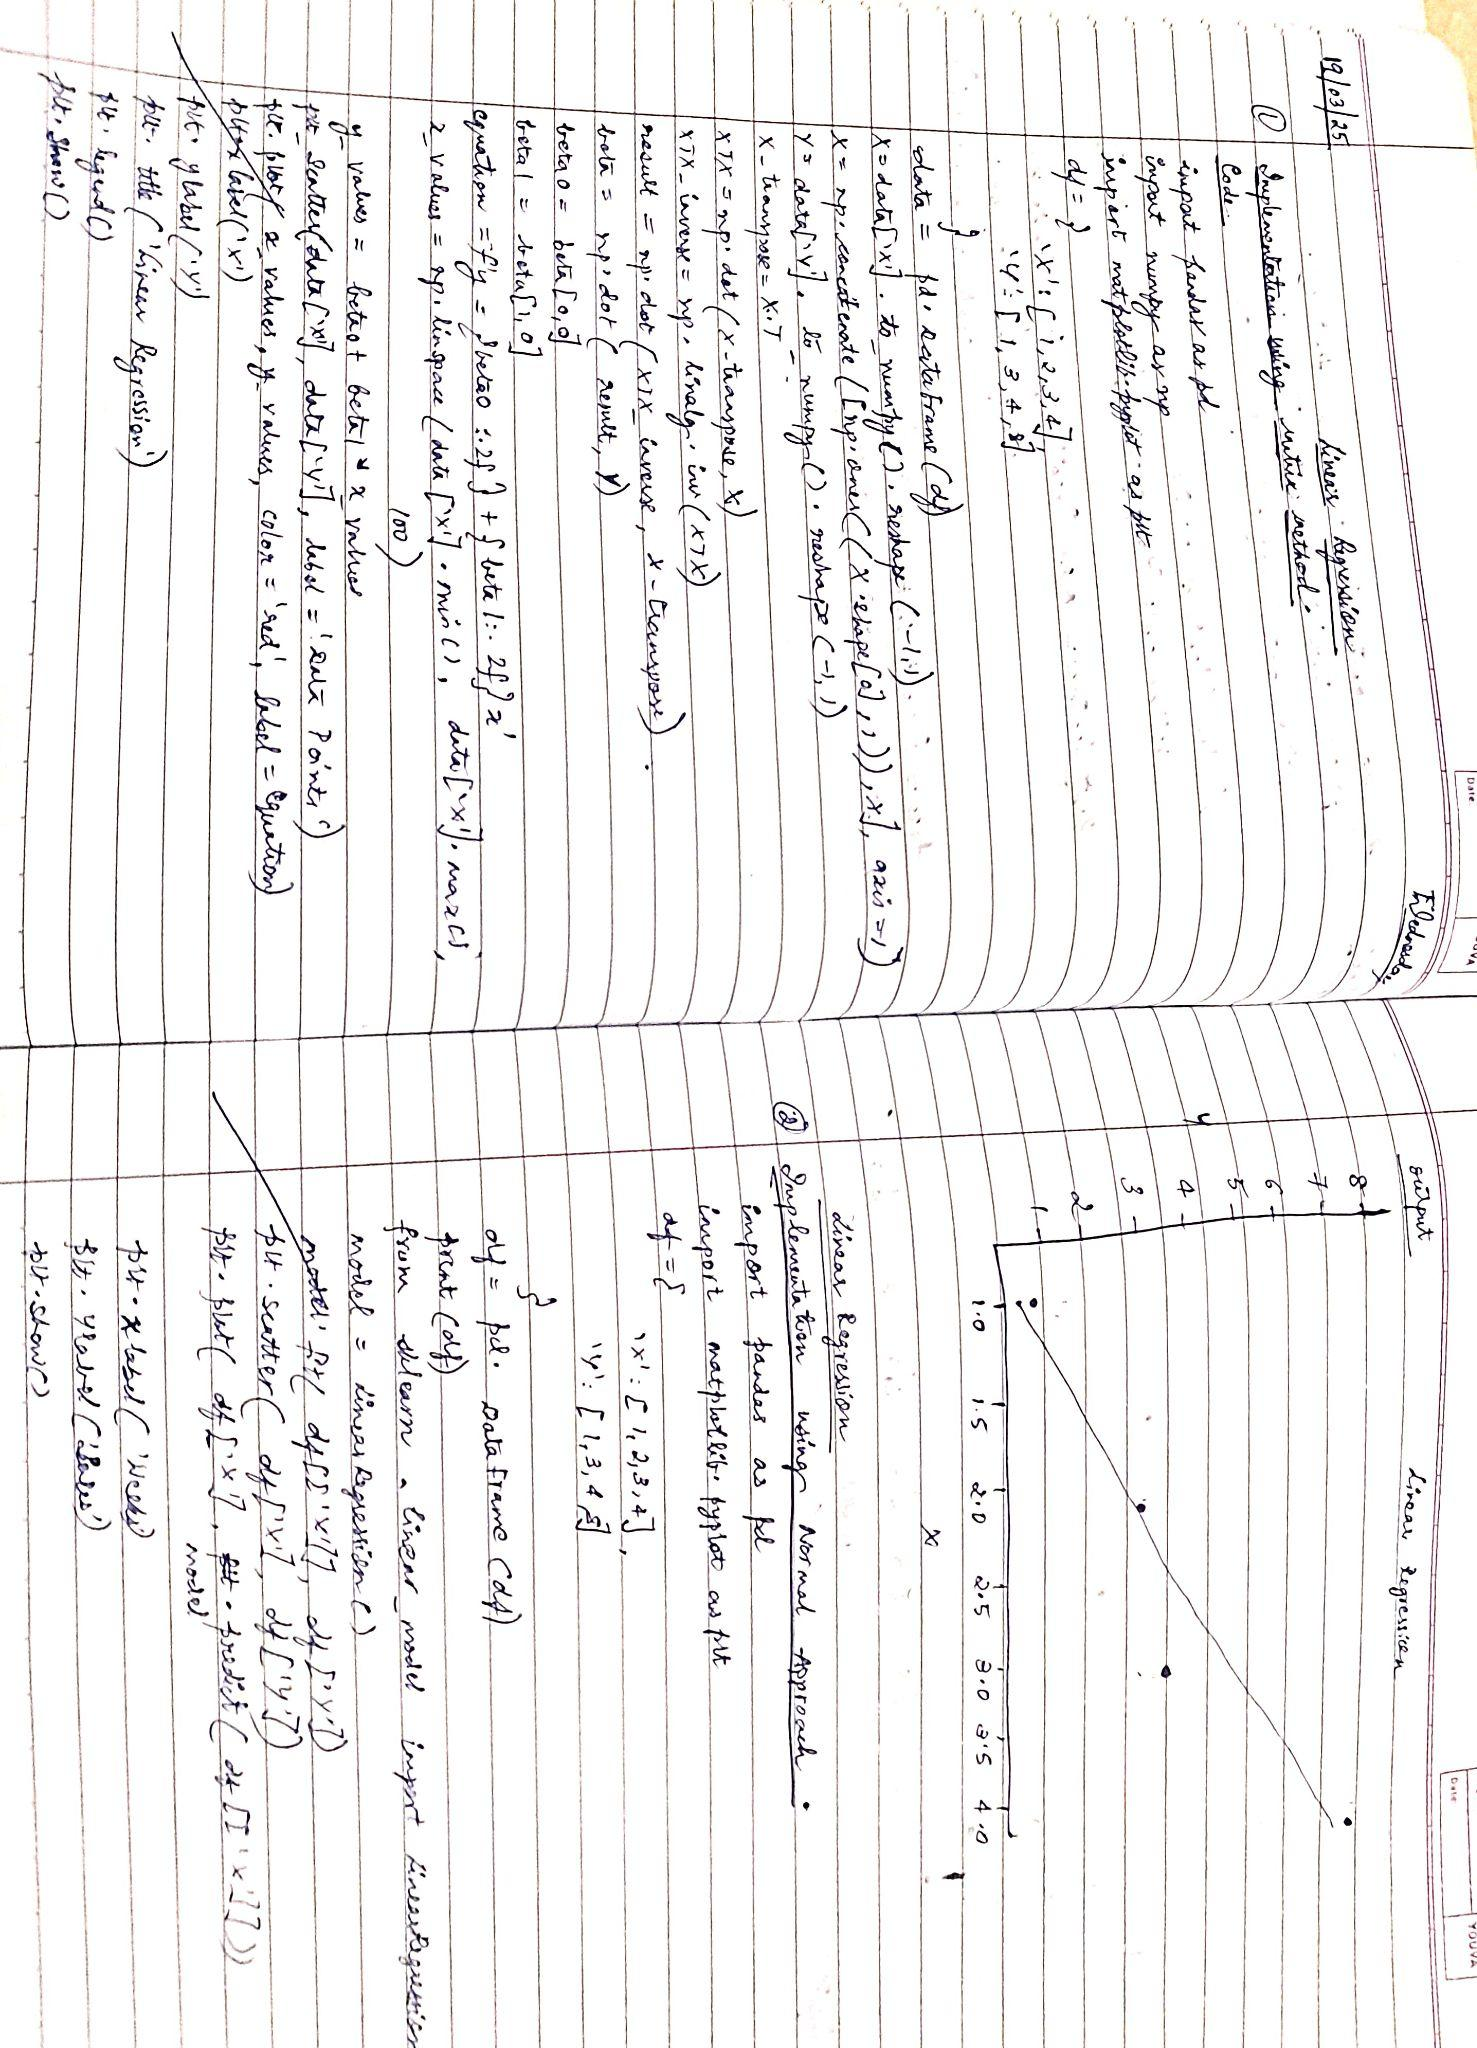 Date
YOUVA
Wednesday
19/03/25
Linear Regression
① Implementation using matrix method:
Code
import pandas as pd
import numpy as np
import matplotlib.pyplot as plt
df = {
'X': [1,2,3,4]
'Y': [1,3,4,8]
}
data = pd.dataframe(df)
X = data['X'].to_numpy().reshape(-1,1)
X = np.concatenate([np.ones((X.shape[0],1)),X], axis=1)
Y = data['Y'].to_numpy().reshape(-1,1)
X-transpose = X.T
XTX = np.dot(X-transpose, X)
XTX_inverse = np.linalg.inv(XTX)
result = np.dot(XTX_inverse, X-transpose)
beta = np.dot(result, Y)
beta0 = beta[0,0]
beta1 = beta[1,0]
equation = f'y = {beta0:.2f} + {beta1:.2f}x'
x_values = np.linspace(data['X'].min(), data['X'].max(),
100)
y_values = beta0 + beta1 * x_values
plt.scatter(data['X'], data['Y'], label = 'Data Points')
plt.plot(x_values, y_values, color = 'red', label = equation)
plt.xlabel('X')
plt.ylabel('Y')
plt.title('Linear Regression')
plt.legend()
plt.show()
Date
YOUVA
output
Linear Regression
8
7
6
5
4
3
2
1
Y
1.0 1.5 2.0 2.5 3.0 3.5 4.0
X
Linear Regression
② Implementation using Normal Approach.
import pandas as pd
import matplotlib.pyplot as plt
df = {
'X': [1,2,3,4],
'Y': [1,3,4,8]
}
df = pd.DataFrame(df)
print(df)
from sklearn.linear_model import LinearRegression
model = LinearRegression()
model.fit(df[['X']], df['Y'])
plt.scatter(df['X'], df['Y'])
plt.plot(df['X'], model.predict(df[['X']]))
plt.xlabel('Weeks')
plt.ylabel('Sales')
plt.show()